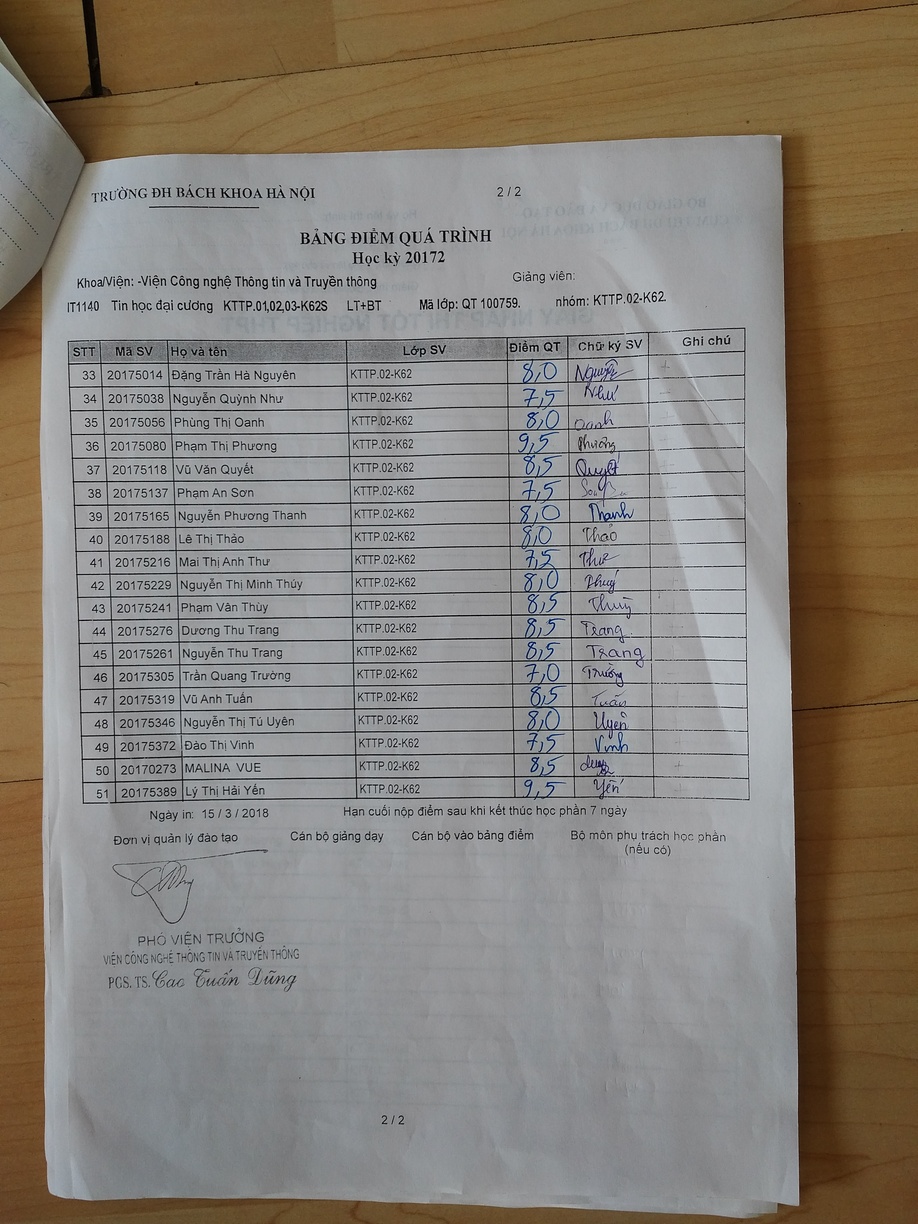 TRƯỜNG ĐH BÁCH KHOA HÀ NỘI 2 / 2
BẢNG ĐIỂM QUÁ TRÌNH
Học kỳ 20172
Khoa/Viện: -Viện Công nghệ Thông tin và Truyền thông Giảng viên:
IT1140 Tin học đại cương KTTP.01,02,03-K62S LT+BT Mã lớp: QT 100759. nhóm: KTTP.02-K62.
STT Mã SV Họ và tên Lớp SV Điểm QT Chữ ký SV Ghi chú
33 20175014 Đặng Trần Hà Nguyên KTTP.02-K62 8,0 Nguyên
34 20175038 Nguyễn Quỳnh Như KTTP.02-K62 7,5 Như
35 20175056 Phùng Thị Oanh KTTP.02-K62 8,0 Oanh
36 20175080 Phạm Thị Phương KTTP.02-K62 9,5 Phương
37 20175118 Vũ Văn Quyết KTTP.02-K62 8,5 Quyết
38 20175137 Phạm An Sơn KTTP.02-K62 7,5 Sơn
39 20175165 Nguyễn Phương Thanh KTTP.02-K62 8,0 Thanh
40 20175188 Lê Thị Thảo KTTP.02-K62 8,0 Thảo
41 20175216 Mai Thị Anh Thư KTTP.02-K62 7,5 Thư
42 20175229 Nguyễn Thị Minh Thúy KTTP.02-K62 8,0 Thuý
43 20175241 Phạm Vân Thùy KTTP.02-K62 8,5 Thuỳ
44 20175276 Dương Thu Trang KTTP.02-K62 8,5 Trang
45 20175261 Nguyễn Thu Trang KTTP.02-K62 8,5 Trang
46 20175305 Trần Quang Trường KTTP.02-K62 7,0 Trường
47 20175319 Vũ Anh Tuấn KTTP.02-K62 8,5 Tuấn
48 20175346 Nguyễn Thị Tú Uyên KTTP.02-K62 8,0 Uyên
49 20175372 Đào Thị Vinh KTTP.02-K62 7,5 Vinh
50 20170273 MALINA VUE KTTP.02-K62 8,5
51 20175389 Lý Thị Hải Yến KTTP.02-K62 9,5 Yến
Ngày in: 15 / 3 / 2018 Hạn cuối nộp điểm sau khi kết thúc học phần 7 ngày
Đơn vị quản lý đào tạo Cán bộ giảng dạy Cán bộ vào bảng điểm Bộ môn phụ trách học phần
(nếu có)
PHÓ VIỆN TRƯỞNG
VIỆN CÔNG NGHỆ THÔNG TIN VÀ TRUYỀN THÔNG
PGS. TS. Cao Tuấn Dũng
2 / 2